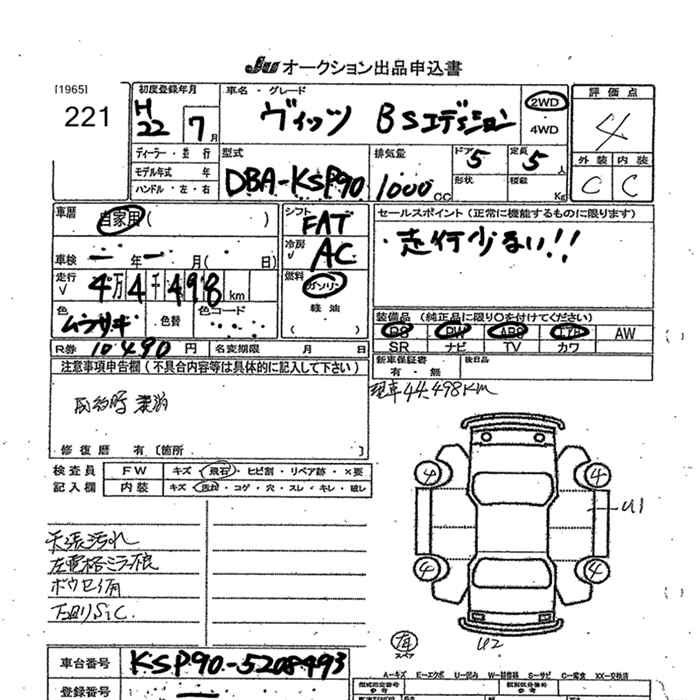 JU オークション出品申込書
[1965]
221
初度登録年月
H 22 7月
車名・グレード
ヴィッツ BSエディション
2WD
4WD
評価点
4
ディーラー・並行
モデル年式 年
ハンドル・左・右
型式
DBA-KSP90
排気量
1000 CC
ドア 5
形状
定員 5 人
積載 Kg
外装 内装
C C
車歴 自家用 ( )
シフト FAT
セールスポイント (正常に機能するものに限ります)
・走行少ない!!
車検 年 月 ( 日)
冷房 AC
走行 4万4千498 km
燃料 ガソリン
軽油
( )
色 ムラサキ
色替
色コード
装備品 (純正品に限り○を付けてください)
PS PW ABS エアB AW
SR ナビ TV カワ
R券 10490 円
名変期限 月 日
新車保証書
有・無
後日品
注意事項申告欄 (不具合内容等は具体的に記入して下さい)
現車44,498KM
修復歴 有 [箇所 ]
検査員 FW キズ・飛石・ヒビ割・リペア跡・×要
記入欄 内装 キズ・汚れ・コゲ・穴・スレ・キレ・破レ
4 4
U1
天張汚れ
4 4
下廻りS.C
U2
車台番号 KSP90-5208493
A-キズ E-エクボ U-凹み W-補修跡 S-サビ C-腐食 XX-交換済
登録番号